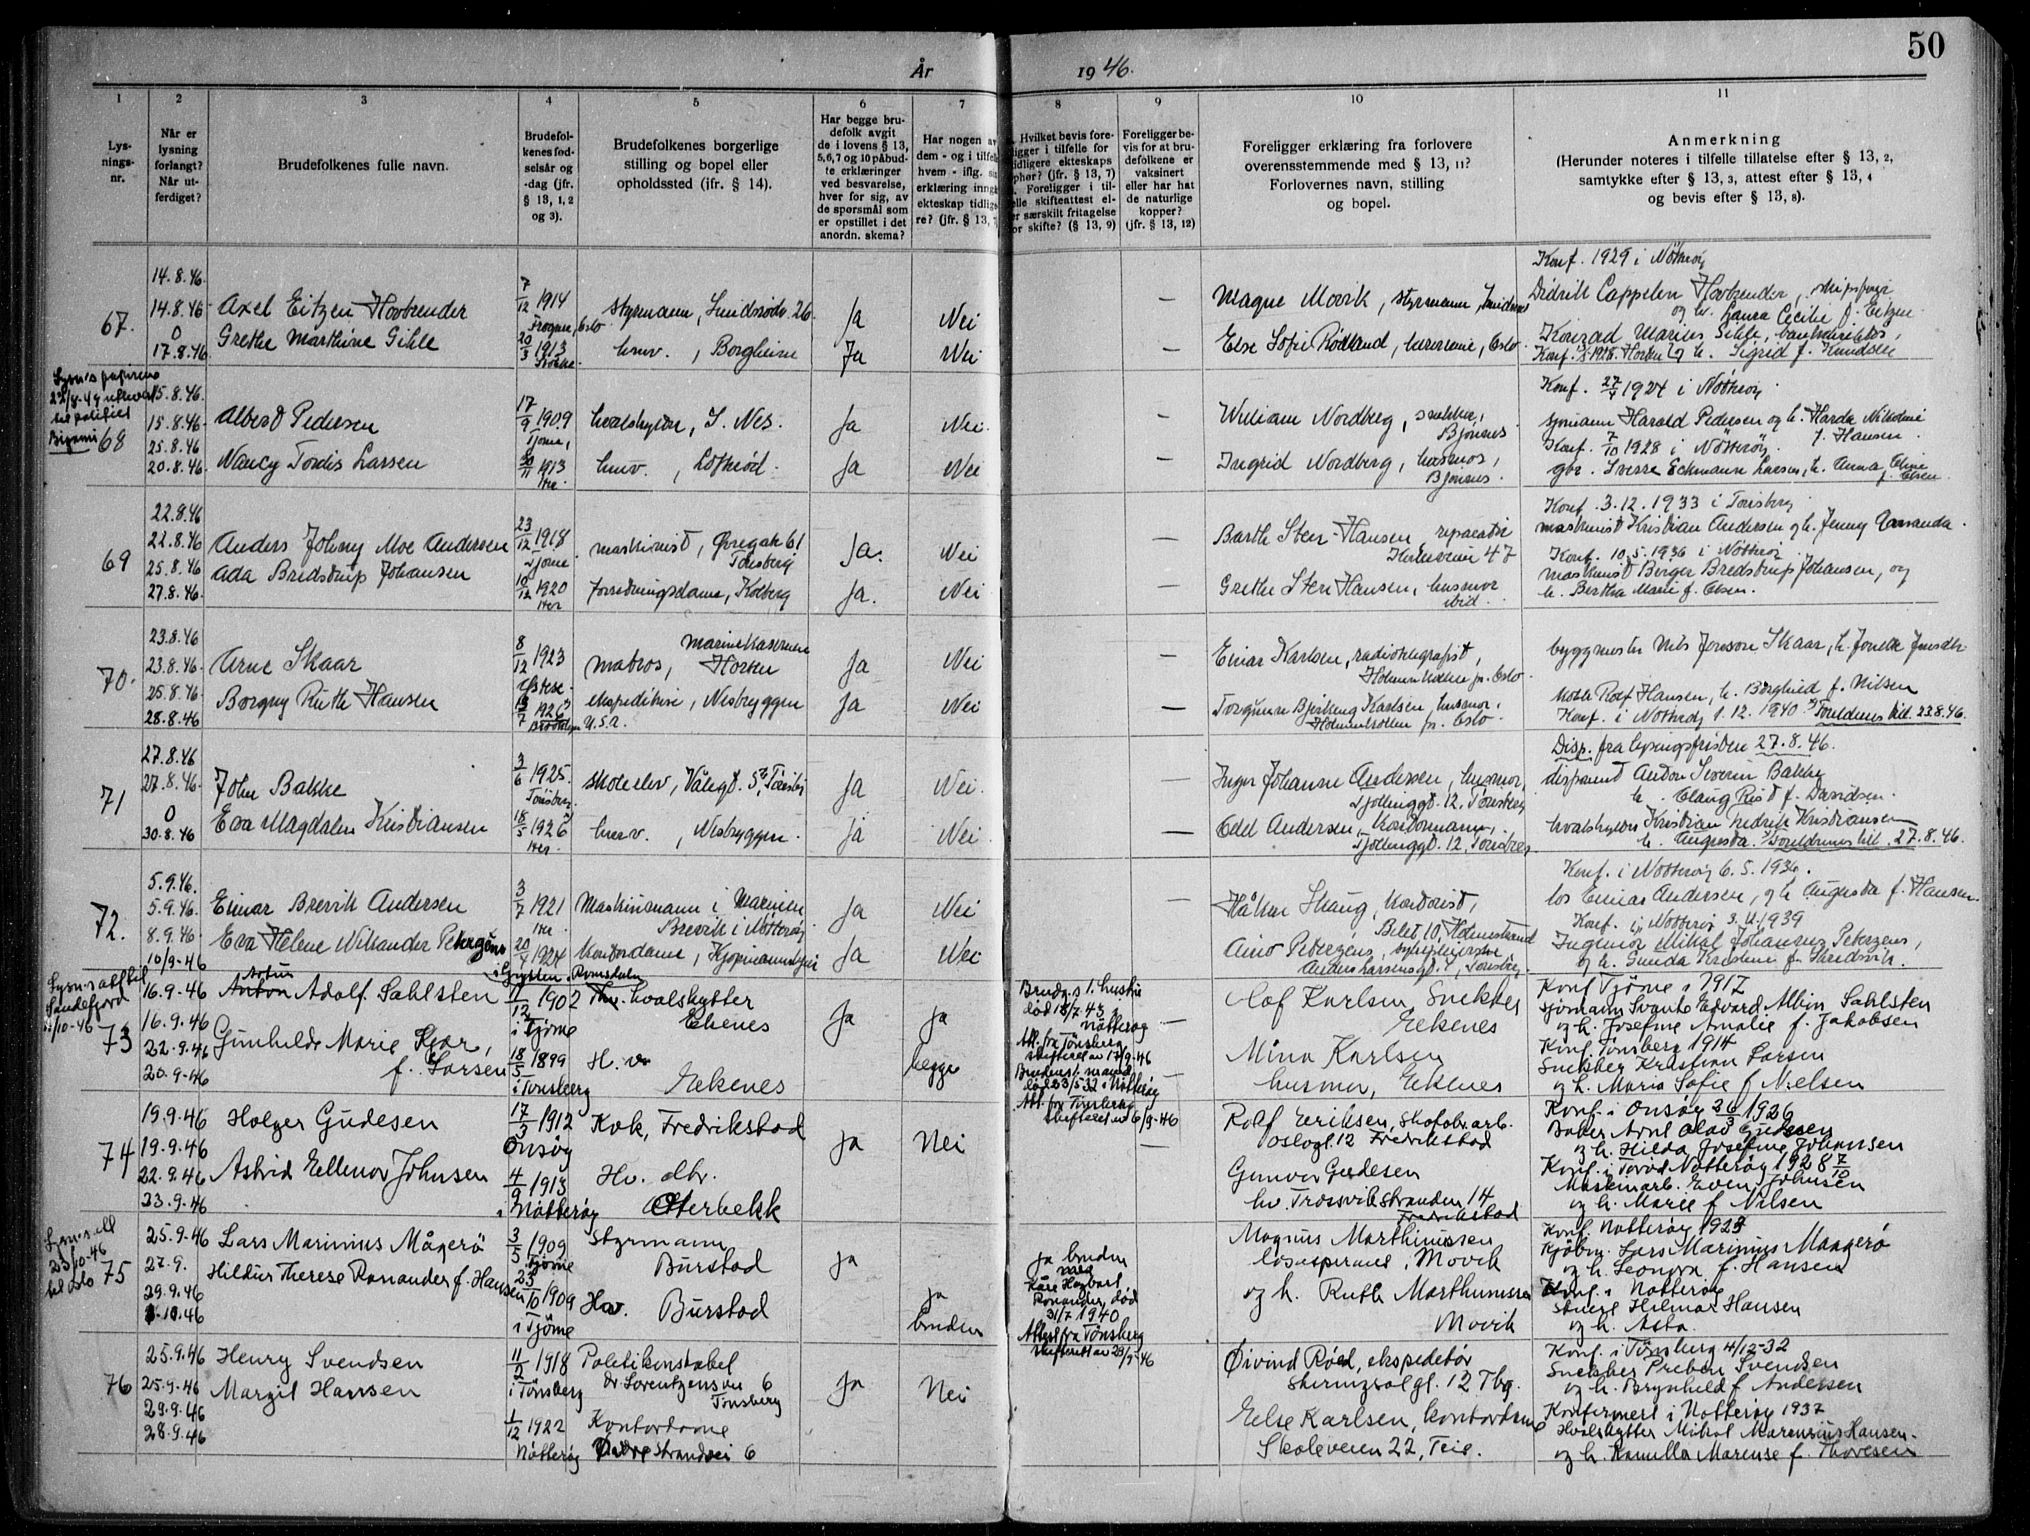 50
År 1946.
1 2 3 4 5 6 7 8 9 10 11
Lys-
nings-
nr.
Når er
lysning
forlangt?
Når ut-
ferdiget?
Brudefolkenes fulle navn.
Brudefol-
kenes fød-
selsår og
-dag (jfr.
§ 13, 1, 2
og 3).
Brudefolkenes borgerlige
stilling og bopel eller
opholdssted (jfr. § 14).
Har begge bru-
defolk avgit
de i lovens § 13,
5,6,7 og 10 påbud-
te erklæringer
ved besvarelse,
hver for sig, av
de spørsmål som
er opstillet i det
anordn. skema?
Har nogen av
dem - og i tilfelle
hvem - iflg. sin
erklæring inngå
ekteskap tidlige
re? (jfr. § 13, 7
Hvilket bevis fore-
ligger i tilfelle for
idligere ekteskaps
phør? (jfr. § 13, 7)
. Foreligger i til-
elle skifteattest el-
er særskilt fritagelse
or skifte? (§ 13, 9)
Foreligger be-
vis for at bru-
defolkene er
vaksinert
eller har hat
de naturlige
kopper?
(jfr. § 13, 12)
Foreligger erklæring fra forlovere
overensstemmende med § 13, 11?
Forlovernes navn, stilling
og bopel.
Anmerkning
(Herunder noteres i tilfelle tillatelse efter § 13, 2,
samtykke efter § 13, 3, attest efter § 13, 4
og bevis efter § 13, 8).
67.
14.8.46.
14.8.46
0
17.8.46
Axel Eitzen Hovbrender
Grethe Marthine Gihle
7/12 1914
Frogner, Oslo
20/3 1913
styrmann, 26
husv. , Borgheim
Ja Nei
Ja Nei
— Magne Movik, styrmann,
— Else Sofie Rødland, Oslo
Konf. 1929 i Nøtterøy
Didrik Cappelen Hovbrender,
og h. Laura Cecilie f. Eitzen
Konrad Marius Gihle,
Konf. 1928. Horten og h. Sigrid f. Knudsen
22/8-49
til politiet
Bigami
68
15.8.46.
15.8.46.
25.8.46
20.8.46.
Albert Pedersen
Nancy Tordis Larsen
17/9 1909
Tjøme,
1913
Her.
hvalskytter, S. Nes.
husv. , Loftrød.
Ja Nei.
Ja Nei
— William Nordberg, snekker,
Bjønnes
— Ingrid Nordberg, husmor,
Bjønnes.
Konf. 1924 i Nøtterøy
sjømann Harald Pedersen og h. Harda Nikoline
f. Hansen
Konf. 7/10 1928 i Nøtterøy
gbr. Sverre Eckmann Larsen, h. Anna Oline
f. Olsen
69
22.8.46
22.8.46
25.8.46.
27.8.46.
Anders Johnny Moe Andersen
Ada Bredstrup Johansen
23/12 1918
Tjøme
10/12 1920
Her
maskinist, Øvregate 61
Tønsberg
forretningsdame, Kolberg
Ja. Nei
Ja. Nei
— Barth Sten-Hansen, reparatør
47
— Grethe Sten Hansen, husmor
ibid.
Konf. 3.12.1933 i Tønsberg
maskinist Kristian Andersen og h. Jenny Amanda.
Konf. 10.5.1936 i Nøtterøy
maskinist Berger Bredstrup Johansen, og
h. Bertha Marie f. Olsen.
70.
23.8.46
23.8.46.
25.8.46.
28.8.46
Arne Skaar
Borgny Ruth Hansen
8/12 1923
13/7 1926
Brooklyn
Marinekasernene
matros, Horten
ekspeditrise, Nesbryggen
U.S.A.
Ja Nei
Ja Nei
— Einar Karlsen, radiotelegrafist,
Holmenkollen pr. Oslo
— Torgunn Bjørkeng Karlsen, husmor,
Holmenkollen pr. Oslo.
byggmester Nils Jonsson Skaar,
Rolf Hansen, h. Borghild f. Nilsen
Konf. i Nøtterøy 1.12.1940. Foreldrenes till. 23.8.46.
71
27.8.46
27.8.46.
0
30.8.46
John Bakke
Eva Magdalen Kristiansen
3/6 1925.
Tønsberg
18/5 1926
Her
skoleelev, Vålegt. 5, Tønsberg
husv. , Nesbryggen.
Ja Nei.
Ja Nei.
Inger Johanne Andersen, husmor,
Tjøllinggt. 12, Tønsberg
— Odd Andersen, kontormann,
Tjøllinggt. 12, Tønsberg
Disp. fra lysningsfristen 27.8.46.
disponent Anton Severin Bakke
h. f. Davidsen.
hvalskytter Kristian Fredrik Kristiansen
h. Augusta. Foreldrenes till. 27.8.46.
72.
5.9.46.
5.9.46.
8.9.46
10/9-46
Einar Brevik Andersen
Eva Helene Wikander Peterzéns
3/7 1921
Her
20/4 1924
Maskinmann i Marinen
Brevik i Nøtterøy
Kontordame,
Ja Nei
Ja Nei
— Håkon Skaug, kontorist,
Bilet 10, Holmestrand
Aino Peterzens, sykepleierske
Anders Larsensgt. 1, Tønsberg
Konf. i Nøtterøy 6.5.1936.
los Einar Andersen, og h. Augusta f. Hansen
Konf. i Nøtterøy 1939
Ingeniør Mikal Johannes Peterzens,
og h. Gunda Kristine f.
Lysn.s att. til
Sandefjord
/10-46
73
16.9-46
16.9.46
22.9.46
20.9-46
Anton Adolf. Sahlsten
Gunhilde Marie Kjær,
f. Larsen
i Grytten. Romsdalen
11/12 1902
i Tjøme
18/5 1899
i Tønsberg
hvalskytter
Ekenes
H. v.
Ekenes
Ja ja
begge
Brudg.s 1. hustru
død 18/7. 43 i
Nøtterøy
Att. fra Tønsberg
skifterett av 17/9-46
Brudens 1. mand
død 23/5 32 i Nøtterøy
Att. fra Tønsberg
skifterett av 6/9-46
— Olaf Karlsen, Snekker
Ekenes
— Mina Karlsen
husmor, Ekenes
Konf Tjøme i 1917
sjømann Svante Edvard Albin Sahlsten
og h. Josefine Amalie f. Jakobsen
Konf. Tønsberg 1914
Snekker Kristian Larsen
og h. Maria Sofie f Nielsen
74
19.9.46
19.9.46
22.9.46
23.9.46
Holger Gudesen
Astrid Ellenor Johnsen
17/3 1912
Onsøy
4/9 1913
i Nøtterøy
Kok, Fredrikstad
Hv. dtr.
Oterbekk
Ja Nei
— Rolf Eriksen, Skofabr.arb.
Oslogt. 12 Fredrikstad
Gunvor Gudesen
hv. Trosvikstranden 14
Fredrikstad
Konf. i Onsøy 26/3 1926
Baker Arnt Olaf Gudesen
og h. Hilda Josefine Johansen
Konf. i Nøtterøy 1928 7/10
Maskinarb. Even Johnsen
og h. Marie f Nilsen
Lysn.s. att
23/10-46
til Oslo
75
25.9.46
27.9.
29.9.46
1.10.46
Lars Marinius Mågerø
Hildur Therese Ronander f. Hansen
3/5 1909
Tjøme
23/10 1909
i Tjøme
Styrmann
Burstad
Hv. Burstad
ja
ja
bruden
ja bruden
Kåre Hagbart
Ronander død
31/7 1940
Attest fra Tønsberg
skifterett av 28/9-46
Magnus Marthinussen
losaspirant, Movik
og h. Ruth Marthinussen
Movik
Konf. Nøtterøy 1924
Kjøbm. Lars Marinius Maagerø
og h. Leonora f. Hansen
Konf. i Nøtterøy
Hilmar Hansen
og h. Asta.
76
25.9.46
25.9.46
29.9.46
28.9.46
Henry Svendsen
Margit Hansen
11/2 1918
i Tønsberg
1/12 1922
Nøtterøy
Politikonstabel
Dr. Lorentzensvei 6
Tønsberg
Kontordame
Nedre Strandvei 6
Ja Nei
Øivind Røed, ekspeditør
Skiringssalgt. 12 Tbg.
Else Karlsen, kontordame
Skoleveien 22, Teie.
Konf. i Tønsberg 4/12-32
Snekker Preben Svendsen
og h. Brynhild f Andersen
Konfirmert i Nøtterøy 1937
Hvalskytter Mikal Marensius Hansen.
og h. Kamilla Marense f. Thoresen